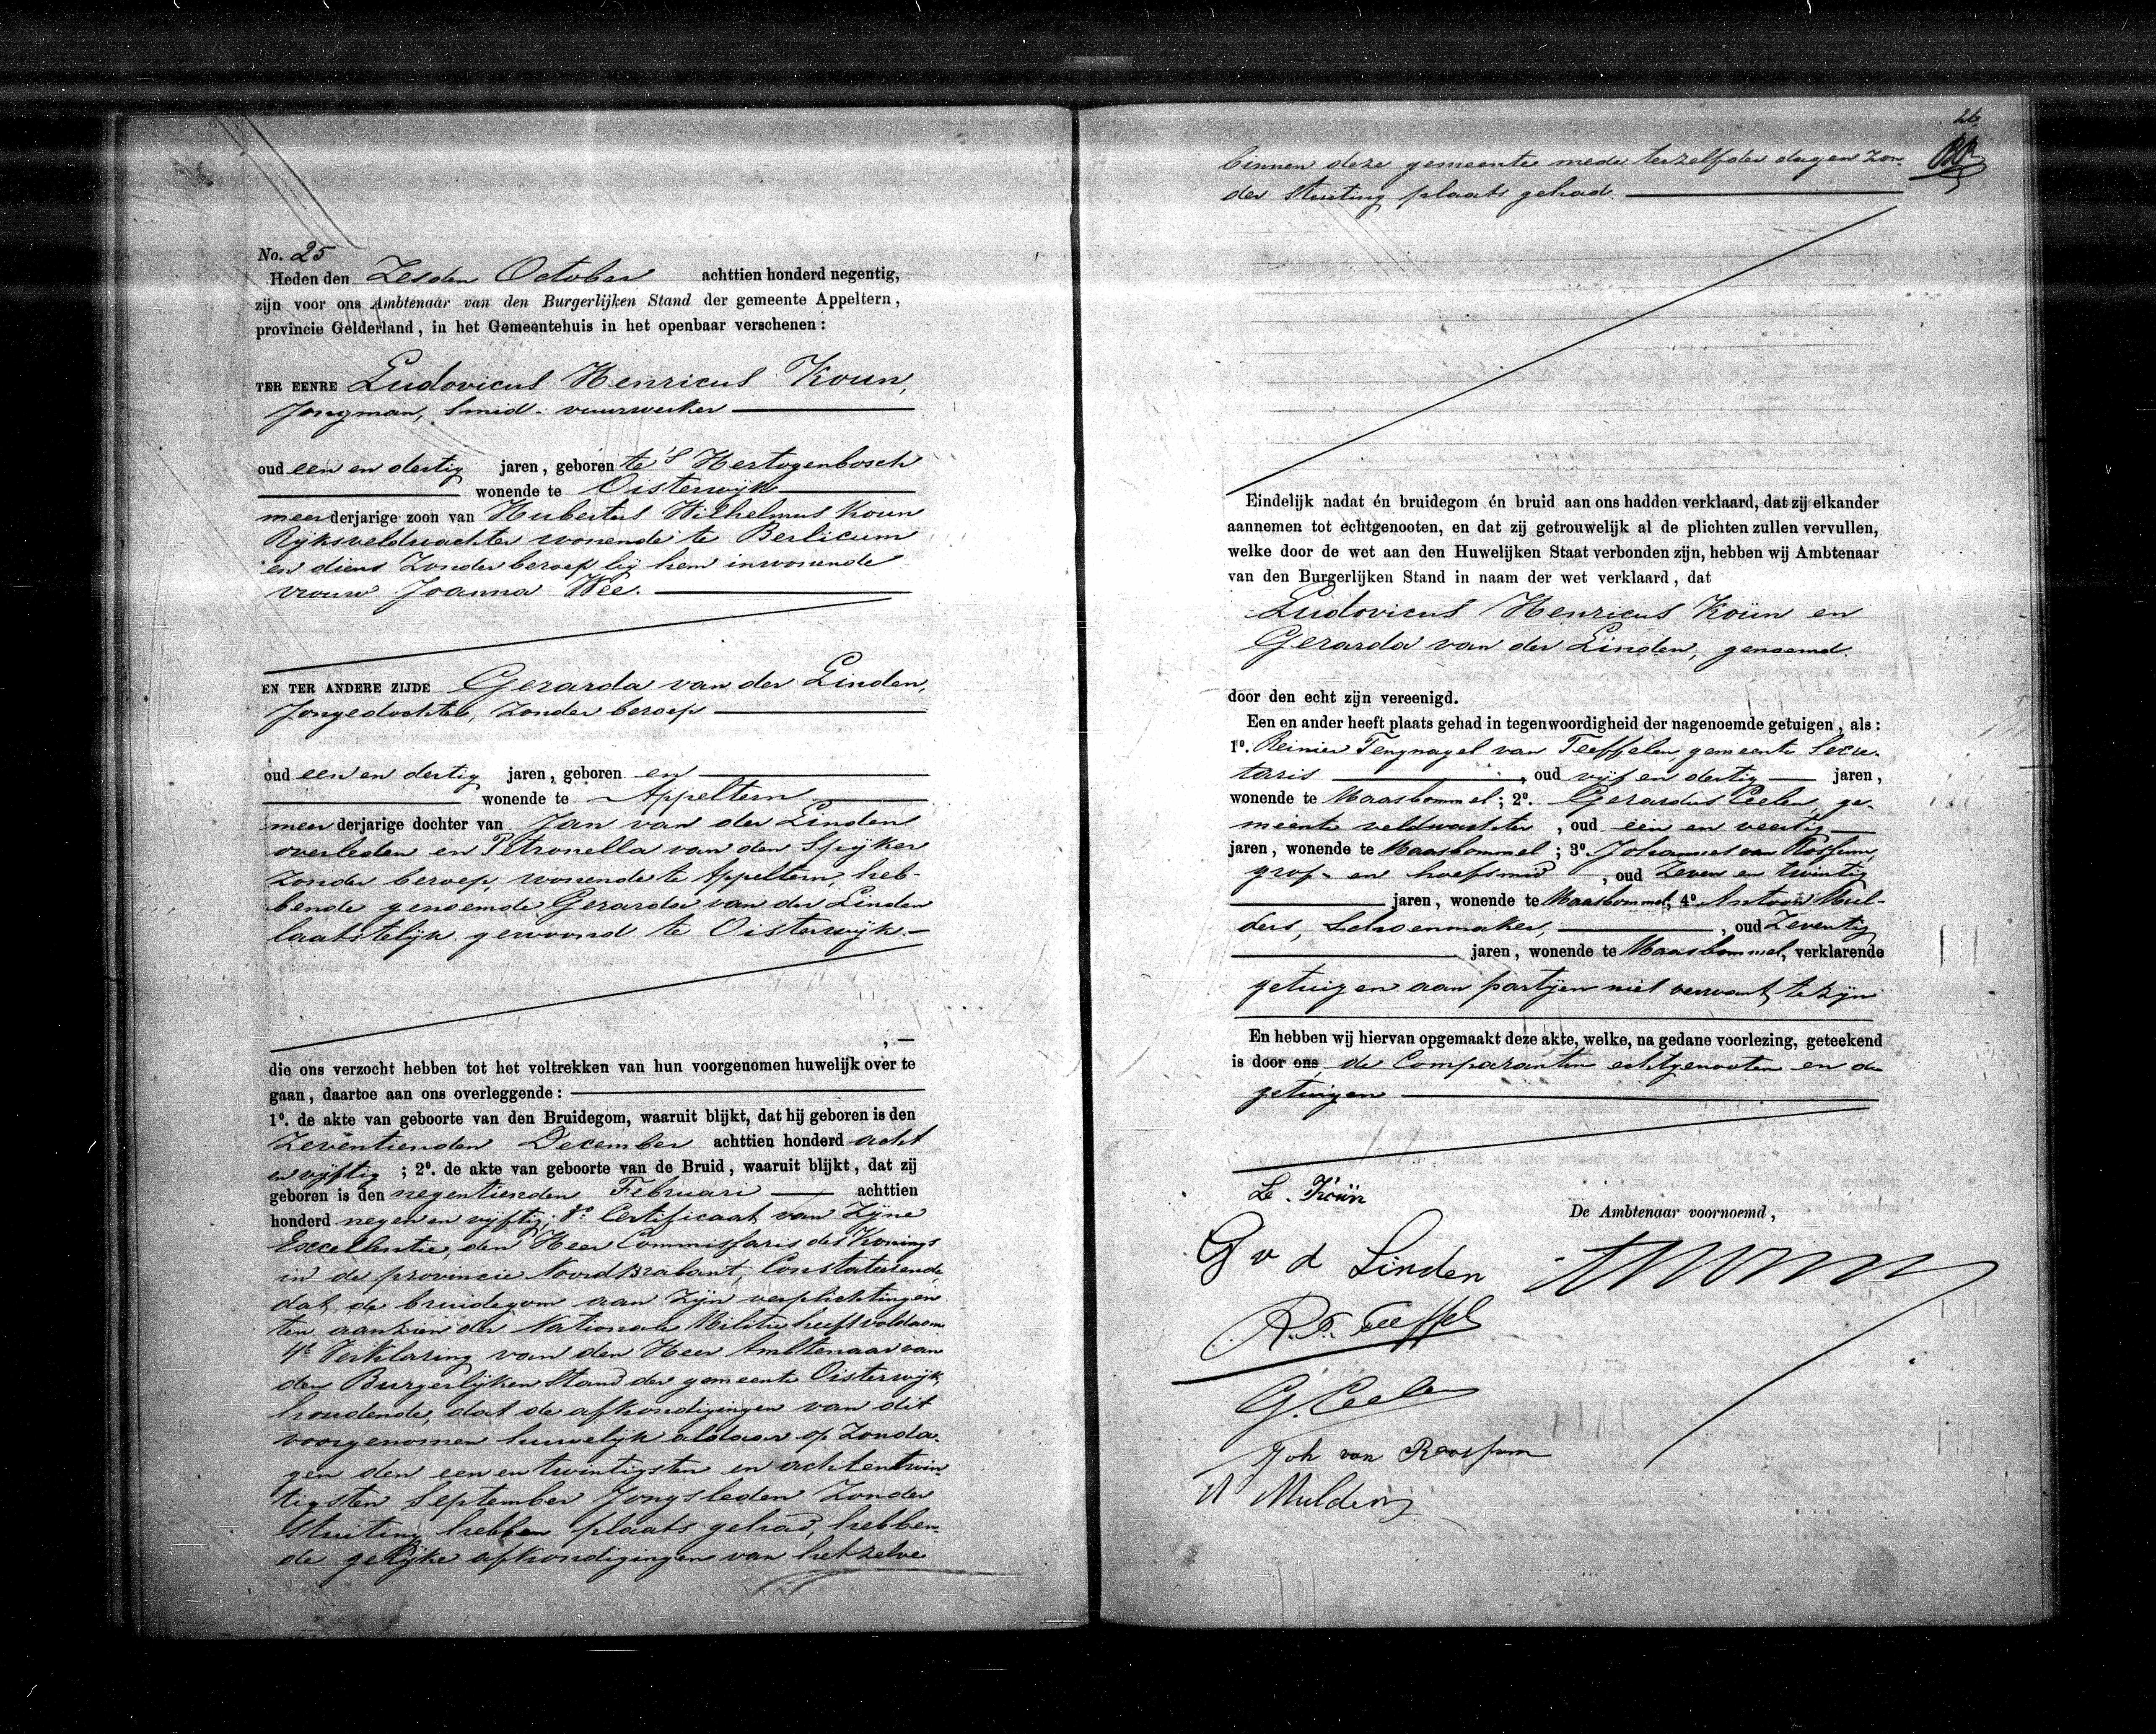 No. 25
Heden den Zesden October achttien honderd negentig,
zijn voor ons Ambtenaar van den Burgerlijken Stand der gemeente Appeltern,
provincie Gelderland, in het Gemeentehuis in het openbaar verschenen:
TER EENRE Ludovicus Henricus Koun,
Jongman, Smid-vuurwerker
oud een en dertig jaren, geboren te 's Hertogenbosch
wonende te Oisterwijk
meerderjarige zoon van Hubertus Wilhelmus Koun
Rijksveldwachter wonende te Berlicum
en diens zonder beroep bij hem inwonende
vrouw Joanna Wee.
EN TER ANDERE ZIJDE Gerarda van der Linden,
Jongedochter, zonder beroep
oud een en dertig jaren, geboren en
wonende te Appeltern
meerderjarige dochter van Jan van der Linden
overleden en Petronella van den Spijker
zonder beroep, wonende te Appeltern, heb-
bende genoemde Gerarda van der Linden
laatstelijk gewoond te Oisterwijk.-
, —
die ons verzocht hebben tot het voltrekken van hun voorgenomen huwelijk over te
gaan, daartoe aan ons overleggende:
1º. de akte van geboorte van den Bruidegom, waaruit blijkt, dat hij geboren is den
Zeventienden December achttien honderd acht
en vijftig ; 2º. de akte van geboorte van de Bruid, waaruit blijkt, dat zij
geboren is den negentienden Februari achttien
honderd negen en vijftig; 3º. Certificaat van Zijne
Excellentie, den Heer Commissaris des Konings
in de provincie Noord Brabant, Constateerende
dat de bruidegom aan zijn verplichtingen
ten aanzien der Nationale Militie heeft voldaan
4º Verklaring van den Heer Ambtenaar van
den Burgerlijken Stand der gemeente Oisterwijk,
houdende, dat de afkondigingen van dit
voorgenomen huwelijk aldaar op Zonda-
gen den een en twintigsten en acht en twin-
tigsten September Jongsleden zonder
stuiting hebben plaats gehad, hebben-
de gelijke afkondigingen van hetzelve
26
binnen deze gemeente mede terzelfder dagen zon-
der stuiting plaats gehad.
Eindelijk nadat én bruidegom én bruid aan ons hadden verklaard, dat zij elkander
aannemen tot echtgenooten, en dat zij getrouwelijk al de plichten zullen vervullen,
welke door de wet aan den Huwelijken Staat verbonden zijn, hebben wij Ambtenaar
van den Burgerlijken Stand in naam der wet verklaard, dat
Ludovicus Henricus Koün en
Gerarda van der Linden, genoemd.
door den echt zijn vereenigd.
Een en ander heeft plaats gehad in tegenwoordigheid der nagenoemde getuigen, als:
1º. Reinier Tengnagel van Teeffelen, gemeente Secre-
taris , oud vijf en dertig jaren,
wonende te Maasbommel; 2º. Gerardus Ceelen, ge-
meente veldwachter , oud een en veertig
jaren, wonende te Maasbommel ; 3º. Johannes van Rossum,
grof- en hoefsmid , oud Zeven en twintig
jaren, wonende te Maasbommel, 4º Antoon Mul-
ders, Schoenmaker, , oud Zeventig
jaren, wonende te Maasbommel, verklarende
getuigen aan partijen niet verwant te zijn
En hebben wij hiervan opgemaakt deze akte, welke, na gedane voorlezing, geteekend
is door ons, de Comparanten echtgenooten en de
getuigen
L. Koün
De Ambtenaar voornoemd,
G v d Linden
R. T. Teeffel
G. Ceelen
Joh van Roossum
A Mulders